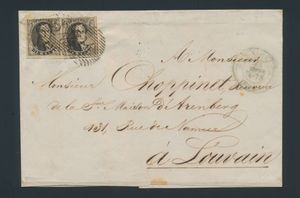 A Monsieur
Monsieur Choppinet
de la Sme Maison d'Arenberg
131, Rue de Namur
à Louvain